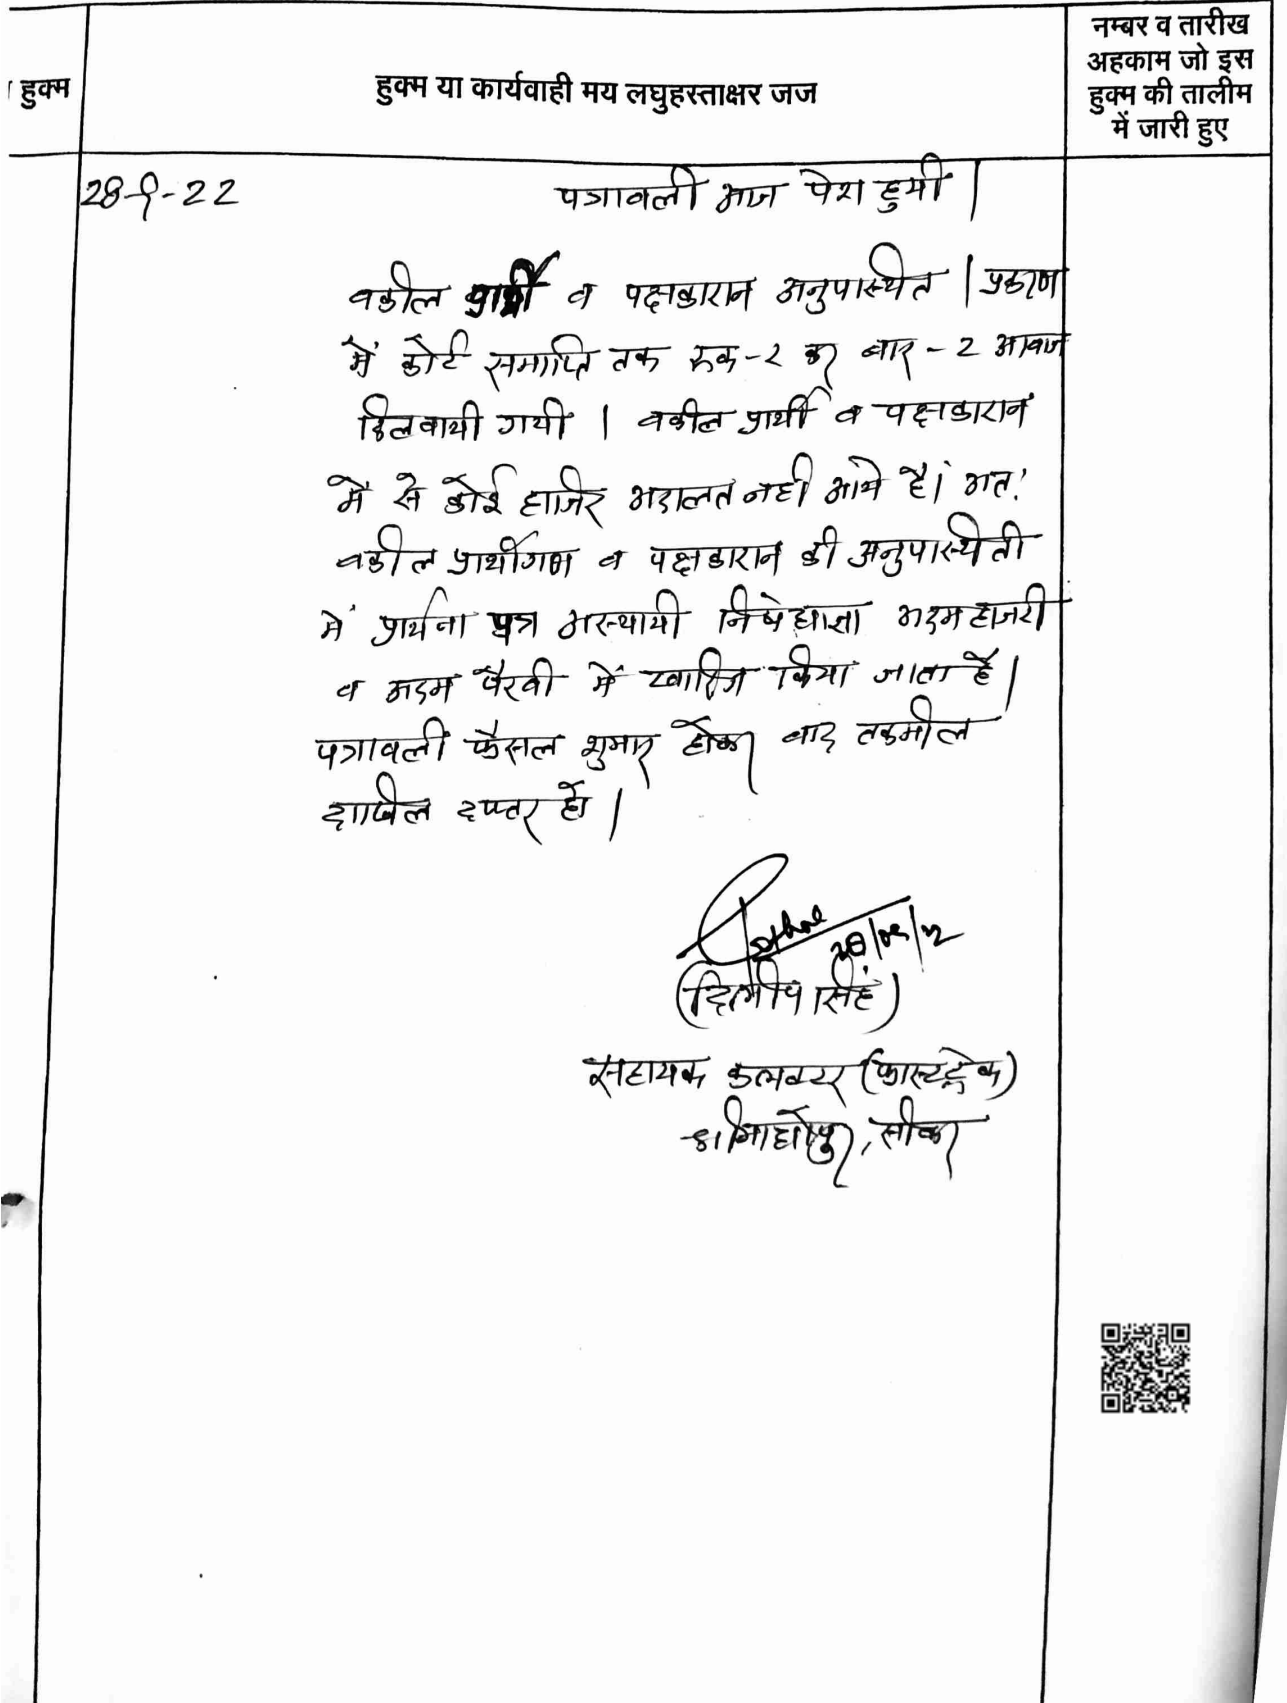 हुक्म
हुक्म या कार्यवाही मय लघुहस्ताक्षर जज
नम्बर व तारीख
अहकाम जो इस
हुक्म की तालीम
में जारी हुए
28-9-22
पत्रावली आज पेश हुयी |
वकील प्रार्थी व पक्षकारान अनुपस्थित | प्रकरण
में कोर्ट समाप्ति तक रुक-२ कर बार-2 आवाज
दिलवायी गयी | वकील प्रार्थी व पक्षकारान
में से कोई हाजिर अदालत नही आये है। अतः
वकील प्रार्थीगण व पक्षकारान की अनुपस्थिती
में प्रार्थना पत्र अस्थायी निषेधाज्ञा अदम हाजरी
व अदम पैरवी में खारिज किया जाता है |
पत्रावली फैसल शुमार होकर बाद तकमील
दाखिल दफ्तर हो |
(दिलीप सिंह)
सहायक कलक्टर (फास्ट्रेक)
श्रीमाधोपुर, सीकर